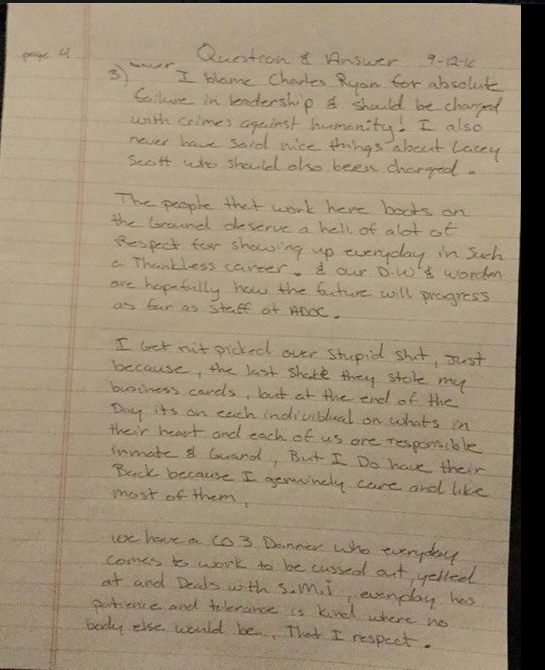 page 4
Question & Answer 9-12-16
3) answer I blame Charles Ryan for absolute
failure in leadership & should be charged
with crimes against humanity! I also
never have said nice things about Lacey
Scott who should also been charged.
The people that work here boots on
the Ground deserve a hell of alot of
Respect for showing up everyday in such
a Thankless career. & our D.W's & warden
are hopefully how the future will progress
as far as staff at ADOC.
I Get nit picked over stupid shit, Just
because, the last they stole my
business cards, but at the end of the
Day its on each individual on whats in
their heart and each of us are responsible
inmate & Guard, But I Do have their
Back because I genuinely care and like
most of them,
we have a CO3 Danner who everyday
comes to work to be cussed out, yelled
at and Deals with S.M.I, everyday has
patience and tolerance is kind where no
body else would be, That I respect.